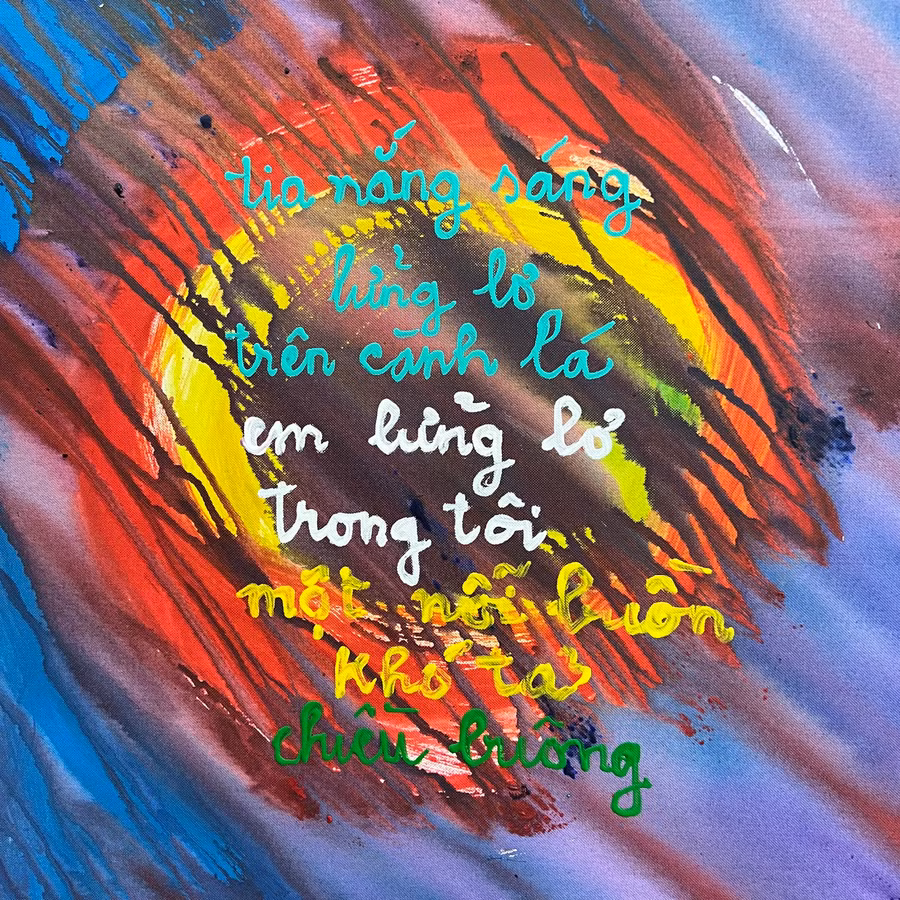 tia nắng sáng
lửng lơ
trên cành lá
em lửng lơ
trong tôi
một nỗi buồn
khó tả
chiều buông